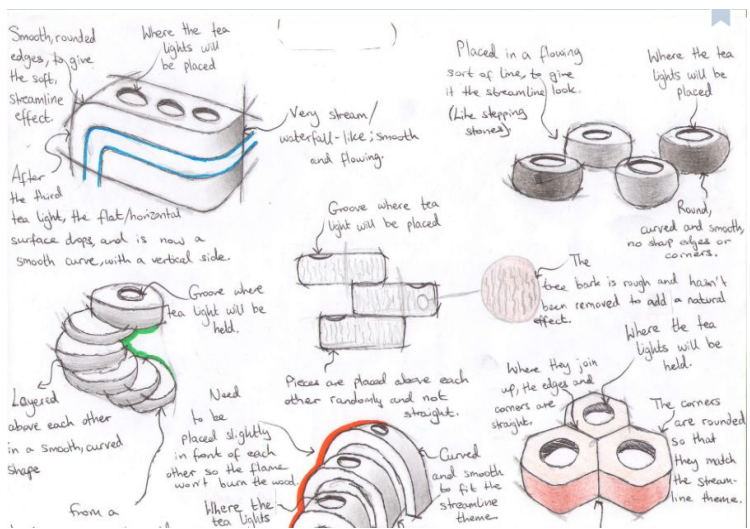 Smooth, rounded
edges, to give
the soft,
streamline
effect.
Where the tea
lights will
be placed
Very stream/
waterfall-like; smooth
and flowing.
After
the third
tea light, the flat/horizontal
surface drops, and is now a
smooth curve, with a vertical side.
Placed in a flowing
sort of line, to give
it the streamline look.
(Like stepping
stones).
Where the tea
lights will be
placed
Round,
curved and smooth,
no sharp edges or
corners.
Groove where tea
light will be placed
The
tree bark is rough and hasn't
been removed to add a natural
effect.
Pieces are placed above each
other randomly and not
straight.
Groove where
tea light will be
held.
Layered
above each other
in a smooth, curved
shape
From a
Need
to be
placed slightly
in front of each
other so the flame
won't burn the wood.
Where the
tea lights
Curved
and smooth
to fit the
streamline
theme.
Where they join
up, the edges and
corners are
straight.
Where the tea
lights will be
held.
The corners
are rounded
so that
they match
the stream-
line theme.